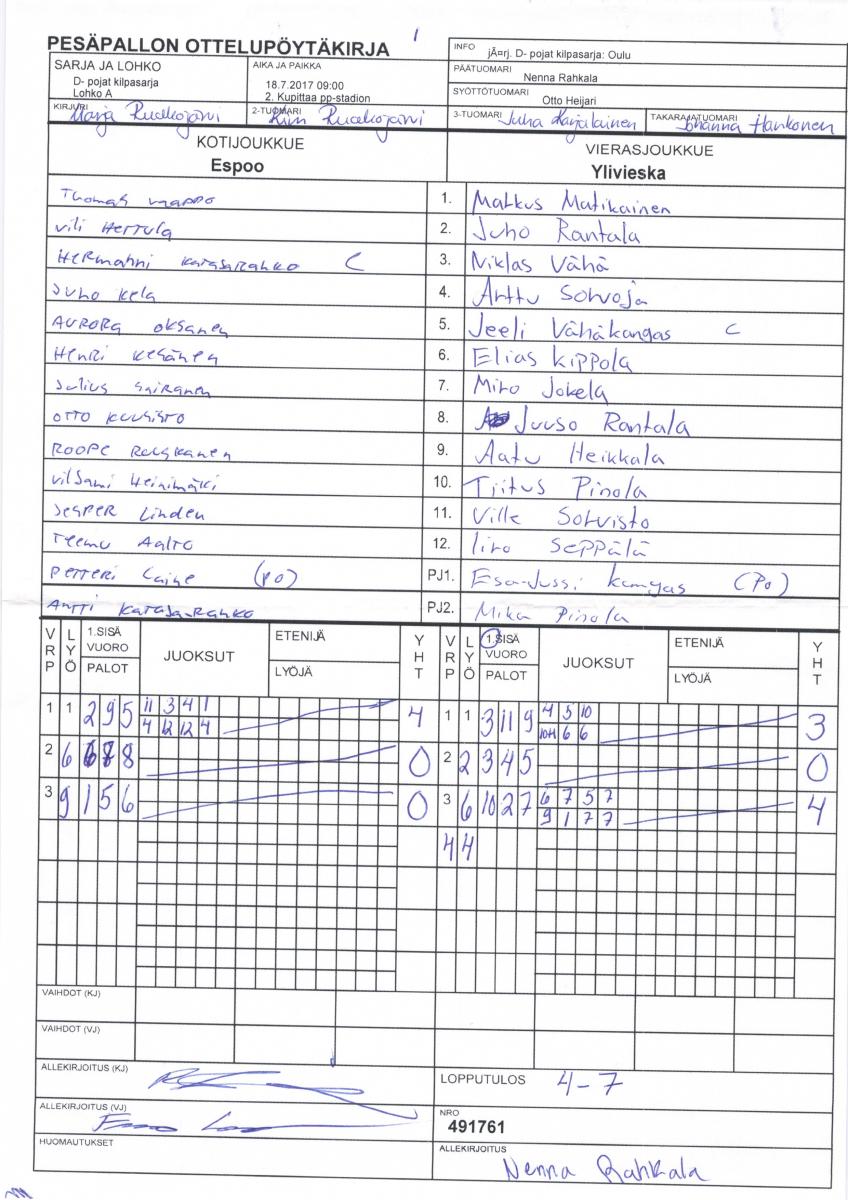 1
PESÄPALLON OTTELUPÖYTÄKIRJA
INFO jÃ¤rj. D- pojat kilpasarja: Oulu
SARJA JA LOHKO
D- pojat kilpasarja
Lohko A
AIKA JA PAIKKA
18.7.2017 09:00
2. Kupittaa pp-stadion
PÄÄTUOMARI
Nenna Rahkala
SYÖTTÖTUOMARI
Otto Heijari
KIRJURI Marja Ruokojärvi
2-TUOMARI Kim Ruokojärvi
3-TUOMARI Juha Karjalainen
TAKARAJATUOMARI Johanna Hankonen
KOTIJOUKKUE
Espoo
VIERASJOUKKUE
Ylivieska
Thomas 1. Markus Matikainen
Vili Hertula 2. Juho Rantala
Hermanni Katajarahko C 3. Niklas Vähä
Juho Kela 4. Arttu Sorvoja
Aurora Oksanen 5. Jeeli Vähäkangas C
Henri Kesänen 6. Elias Kippola
Julius Sairanen 7. Miro Jokela
Otto Kuusisto 8. Juuso Rantala
Roope Ruuskanen 9. Aatu Heikkala
Vilsami Heinimäki 10. Tiitus Pinola
Jesper Linden 11. Ville Sorvisto
Teemu Aalto 12. Iiro Seppälä
Petteri Laine (PO) PJ1. Esa-Jussi Kangas (PO)
Antti Kataja-Rahko PJ2. Mika Pinola
VRP LYÖ 1.SISÄ VUORO PALOT JUOKSUT ETENIJÄ LYÖJÄ YHT VRP LYÖ 1.SISÄ VUORO PALOT JUOKSUT ETENIJÄ LYÖJÄ YHT
1 1 2 9 5 11 3 4 1 4 1 1 3 11 9 4 5 10 3
4 12 12 4 10H 6 6
2 6 6 7 8 0 2 2 3 4 5 0
3 9 1 5 6 0 3 6 10 2 7 6 7 5 7 4
9 1 7 7
4 4
VAIHDOT (KJ)
VAIHDOT (VJ)
ALLEKIRJOITUS (KJ)
LOPPUTULOS 4-7
ALLEKIRJOITUS (VJ)
NRO
491761
HUOMAUTUKSET
ALLEKIRJOITUS
Nenna Rahkala